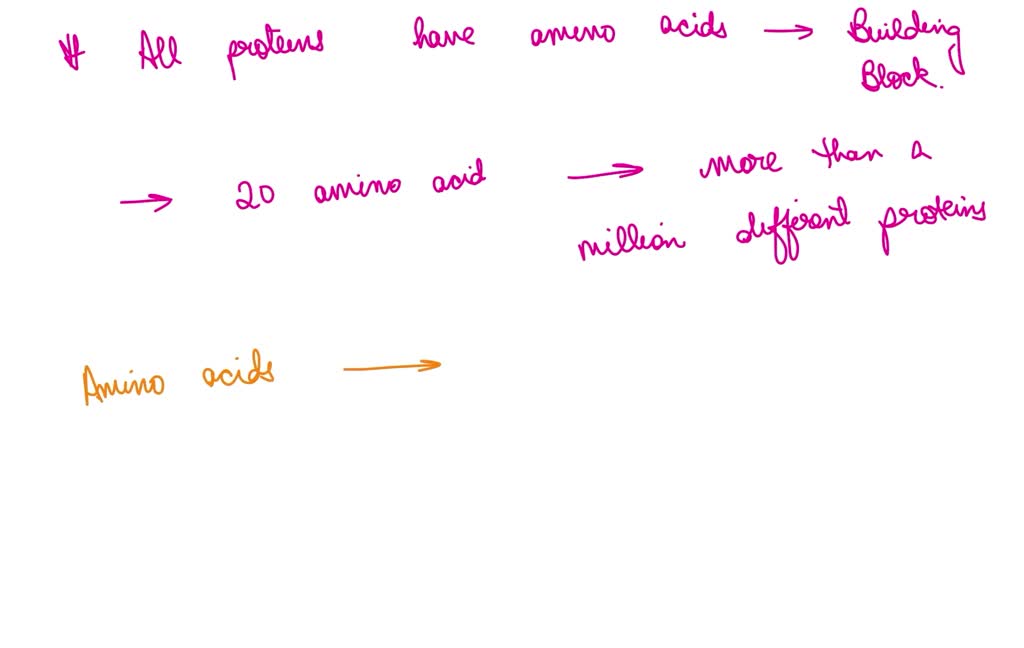 * All proteins have amino acids → Building
Block.
→ 20 amino acid → more than a
million different proteins
Amino acids →